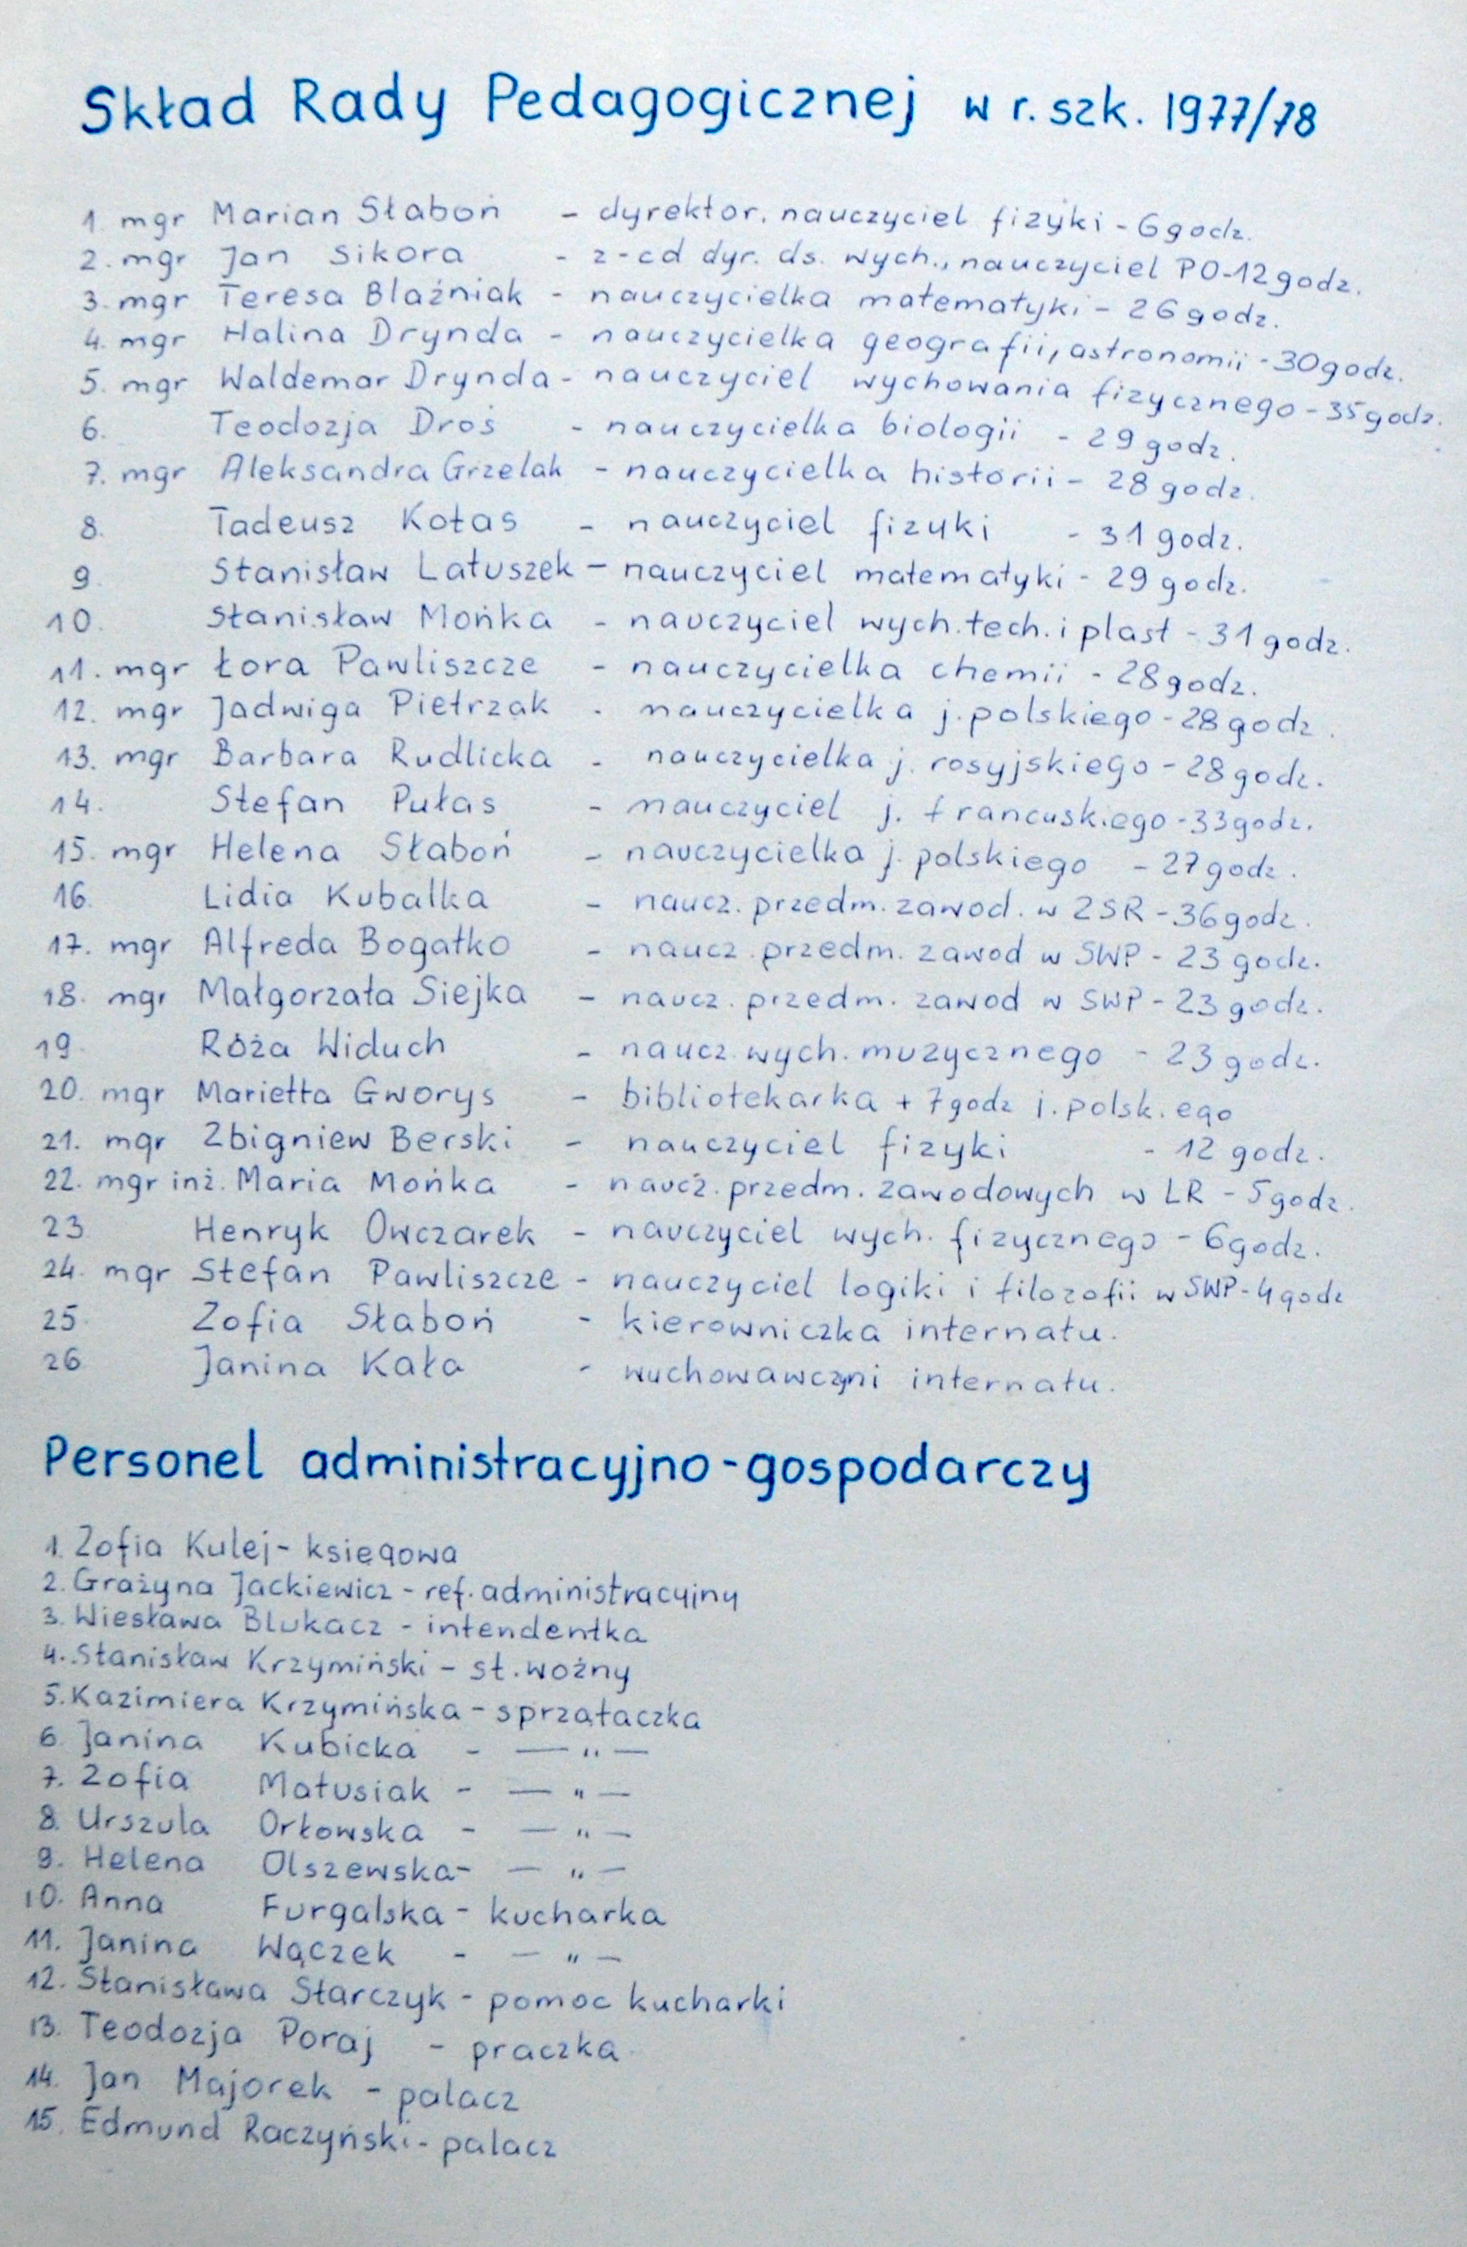 Skład Rady Pedagogicznej w r. szk. 1977/78
1. mgr Marian Słaboń - dyrektor, nauczyciel fizyki - 6 godz.
2. mgr Jan Sikora - z-cd dyr. ds. wych., nauczyciel PO-12 godz.
3. mgr Teresa Błaźniak - nauczycielka matematyki - 26 godz.
4. mgr Halina Drynda - nauczycielka geografii, astronomii - 30 godz.
5. mgr Waldemar Drynda - nauczyciel wychowania fizycznego - 35 godz.
6. Teodozja Droś - nauczycielka biologii - 29 godz.
7. mgr Aleksandra Grzelak - nauczycielka historii - 28 godz.
8. Tadeusz Kotas - nauczyciel fizyki - 31 godz.
9. Stanisław Latuszek - nauczyciel matematyki - 29 godz.
10. Stanisław Mońka - nauczyciel wych. tech. i plast - 31 godz.
11. mgr Łora Pawliszcze - nauczycielka chemii - 28 godz.
12. mgr Jadwiga Pietrzak - nauczycielka j. polskiego - 28 godz.
13. mgr Barbara Rudlicka - nauczycielka j. rosyjskiego - 28 godz.
14. Stefan Pułas - nauczyciel j. francuskiego - 33 godz.
15. mgr Helena Słaboń - nauczycielka j. polskiego - 27 godz.
16. Lidia Kubalka - naucz. przedm. zawod. w ZSR - 36 godz.
17. mgr Alfreda Bogatko - naucz. przedm. zawod w SWP - 23 godz.
18. mgr Małgorzata Siejka - naucz. przedm. zawod w SWP - 23 godz.
19. Róża Widuch - naucz. wych. muzycznego - 23 godz.
20. mgr Marietta Gworys - bibliotekarka + 7 godz j. polsk.ego
21. mgr Zbigniew Berski - nauczyciel fizyki - 12 godz.
22. mgr inż. Maria Mońka - naucz. przedm. zawodowych w LR - 5 godz.
23 Henryk Owczarek - nauczyciel wych. fizycznego - 6 godz.
24. mgr Stefan Pawliszcze - nauczyciel logiki i filozofii w SWP - 4 godz
25. Zofia Słaboń - kierowniczka internatu.
26 Janina Kała - wychowawczyni internatu.
Personel administracyjno-gospodarczy
1. Zofia Kulej - księgowa
2. Grażyna Jackiewicz - ref. administracyjny
3. Wiesława Blukacz - intendentka
4. Stanisław Krzymiński - st. woźny
5. Kazimiera Krzymińska - sprzątaczka
6. Janina Kubicka - — " —
7. Zofia Matusiak - — " —
8. Urszula Orłowska - — " —
9. Helena Olszewska - — " —
10. Anna Furgalska - kucharka
11. Janina Wączek - — " —
12. Stanisława Starczyk - pomoc kucharki
13. Teodozja Poraj - praczka
14. Jan Majorek - palacz
15. Edmund Raczyński - palacz